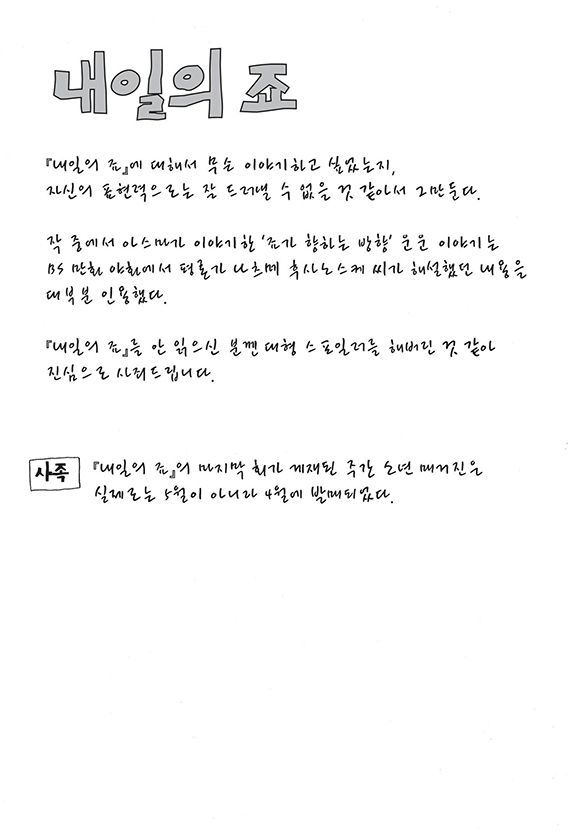 내일의 죠
『내일의 죠』에 대해서 무슨 이야기하고 싶었는지,
자신의 표현력으로는 잘 드러낼 수 없을 것 같아서 그만둔다.
작 중에서 아스마가 이야기한 '죠가 향하는 방향' 운운 이야기는
BS 만화 야화에서 평론가 나츠메 후사노스케 씨가 해설했던 내용을
대부분 인용했다.
『내일의 죠』를 안 읽으신 분껜 대형 스포일러를 해버린 것 같아
진심으로 사죄드립니다.
사족 『내일의 죠』의 마지막 회가 게재된 주간 소년 매거진은
실제로는 5월이 아니라 4월에 발매되었다.